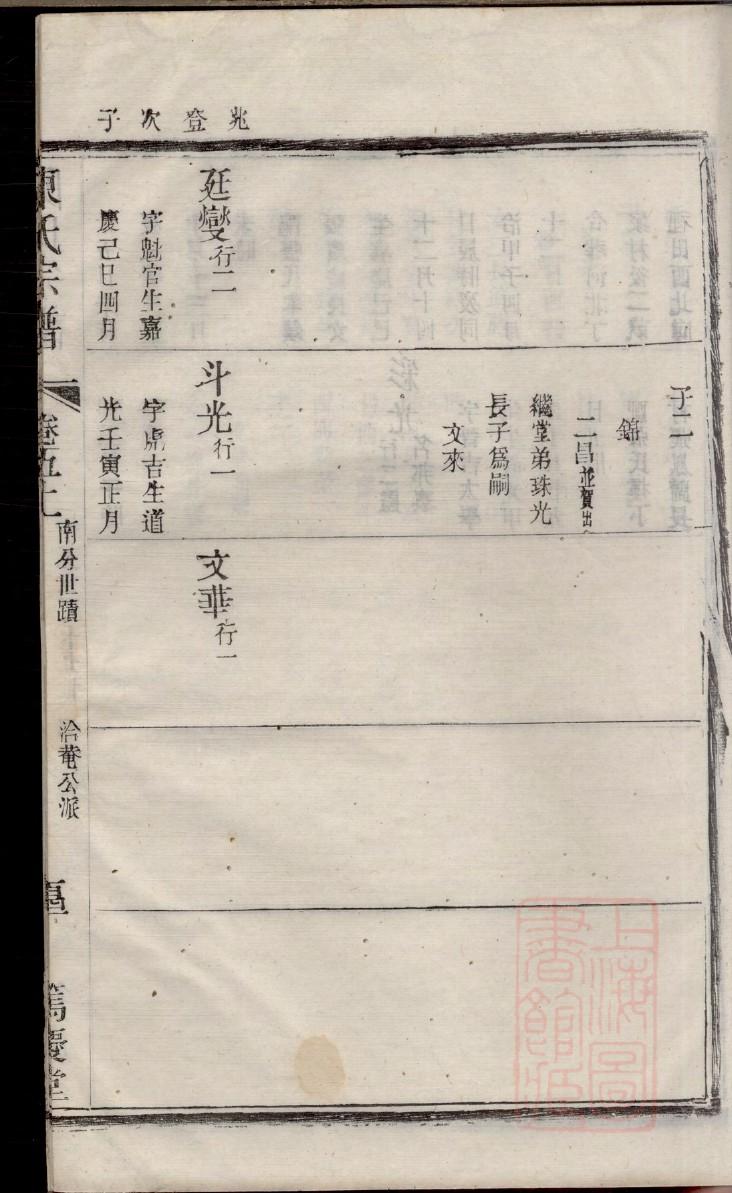 兆登次子
廷變行二
字魁官生嘉
慶己巳四月
子二
錦
二昌並賀出
繼堂弟珠光
長子爲嗣
文來
斗光行一
字虎吉生道
光壬寅正月
文華行一
陳氏宗譜
卷五上
南分世蹟
洽菴公派
篤慶堂
上海圖書館藏